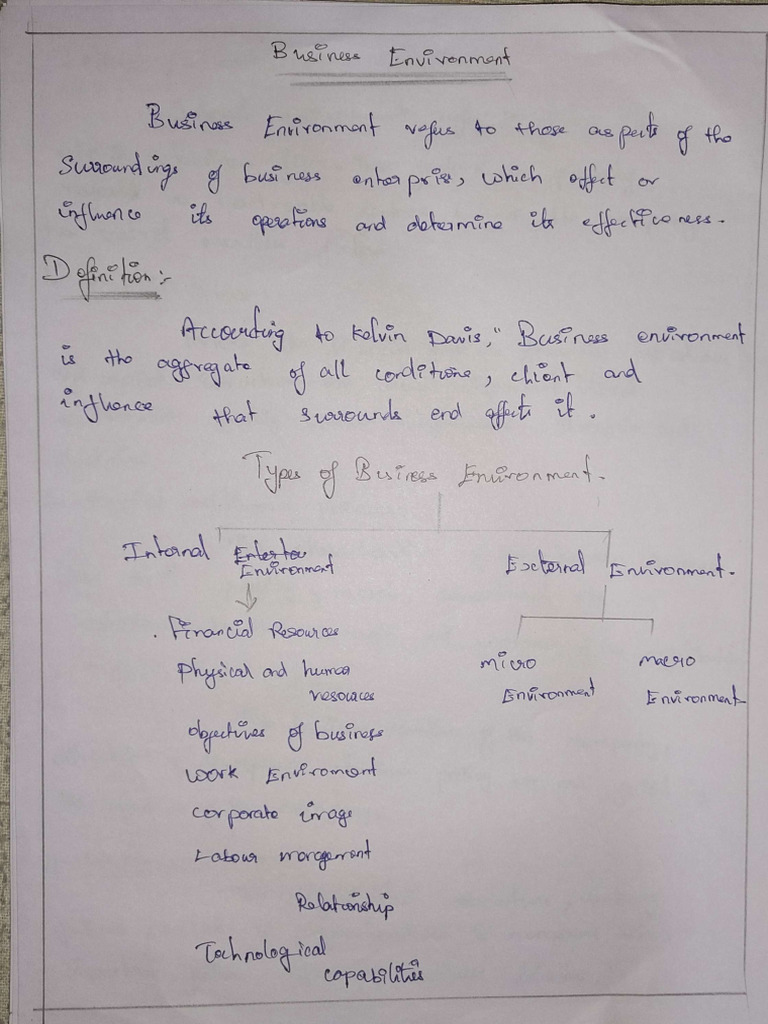 Business Environment
Business Environment refus to those aspects of the
Surroundings of business enterpris, which effect or
influence its operations and determine its effectiveness.
Definition:-
According to Kelvin Davis," Business environment
is the aggregate of all conditions, client and
influence that surrounds end affects it.
Types of Business Environment.
Internal Environment
External Environment.
Financial Resources
Physical and human
resources
objectives of business
work Enviroment
corporate image
Labour mangement
Relationship
Technological
capabilities
micro
Environment
macro
Environment